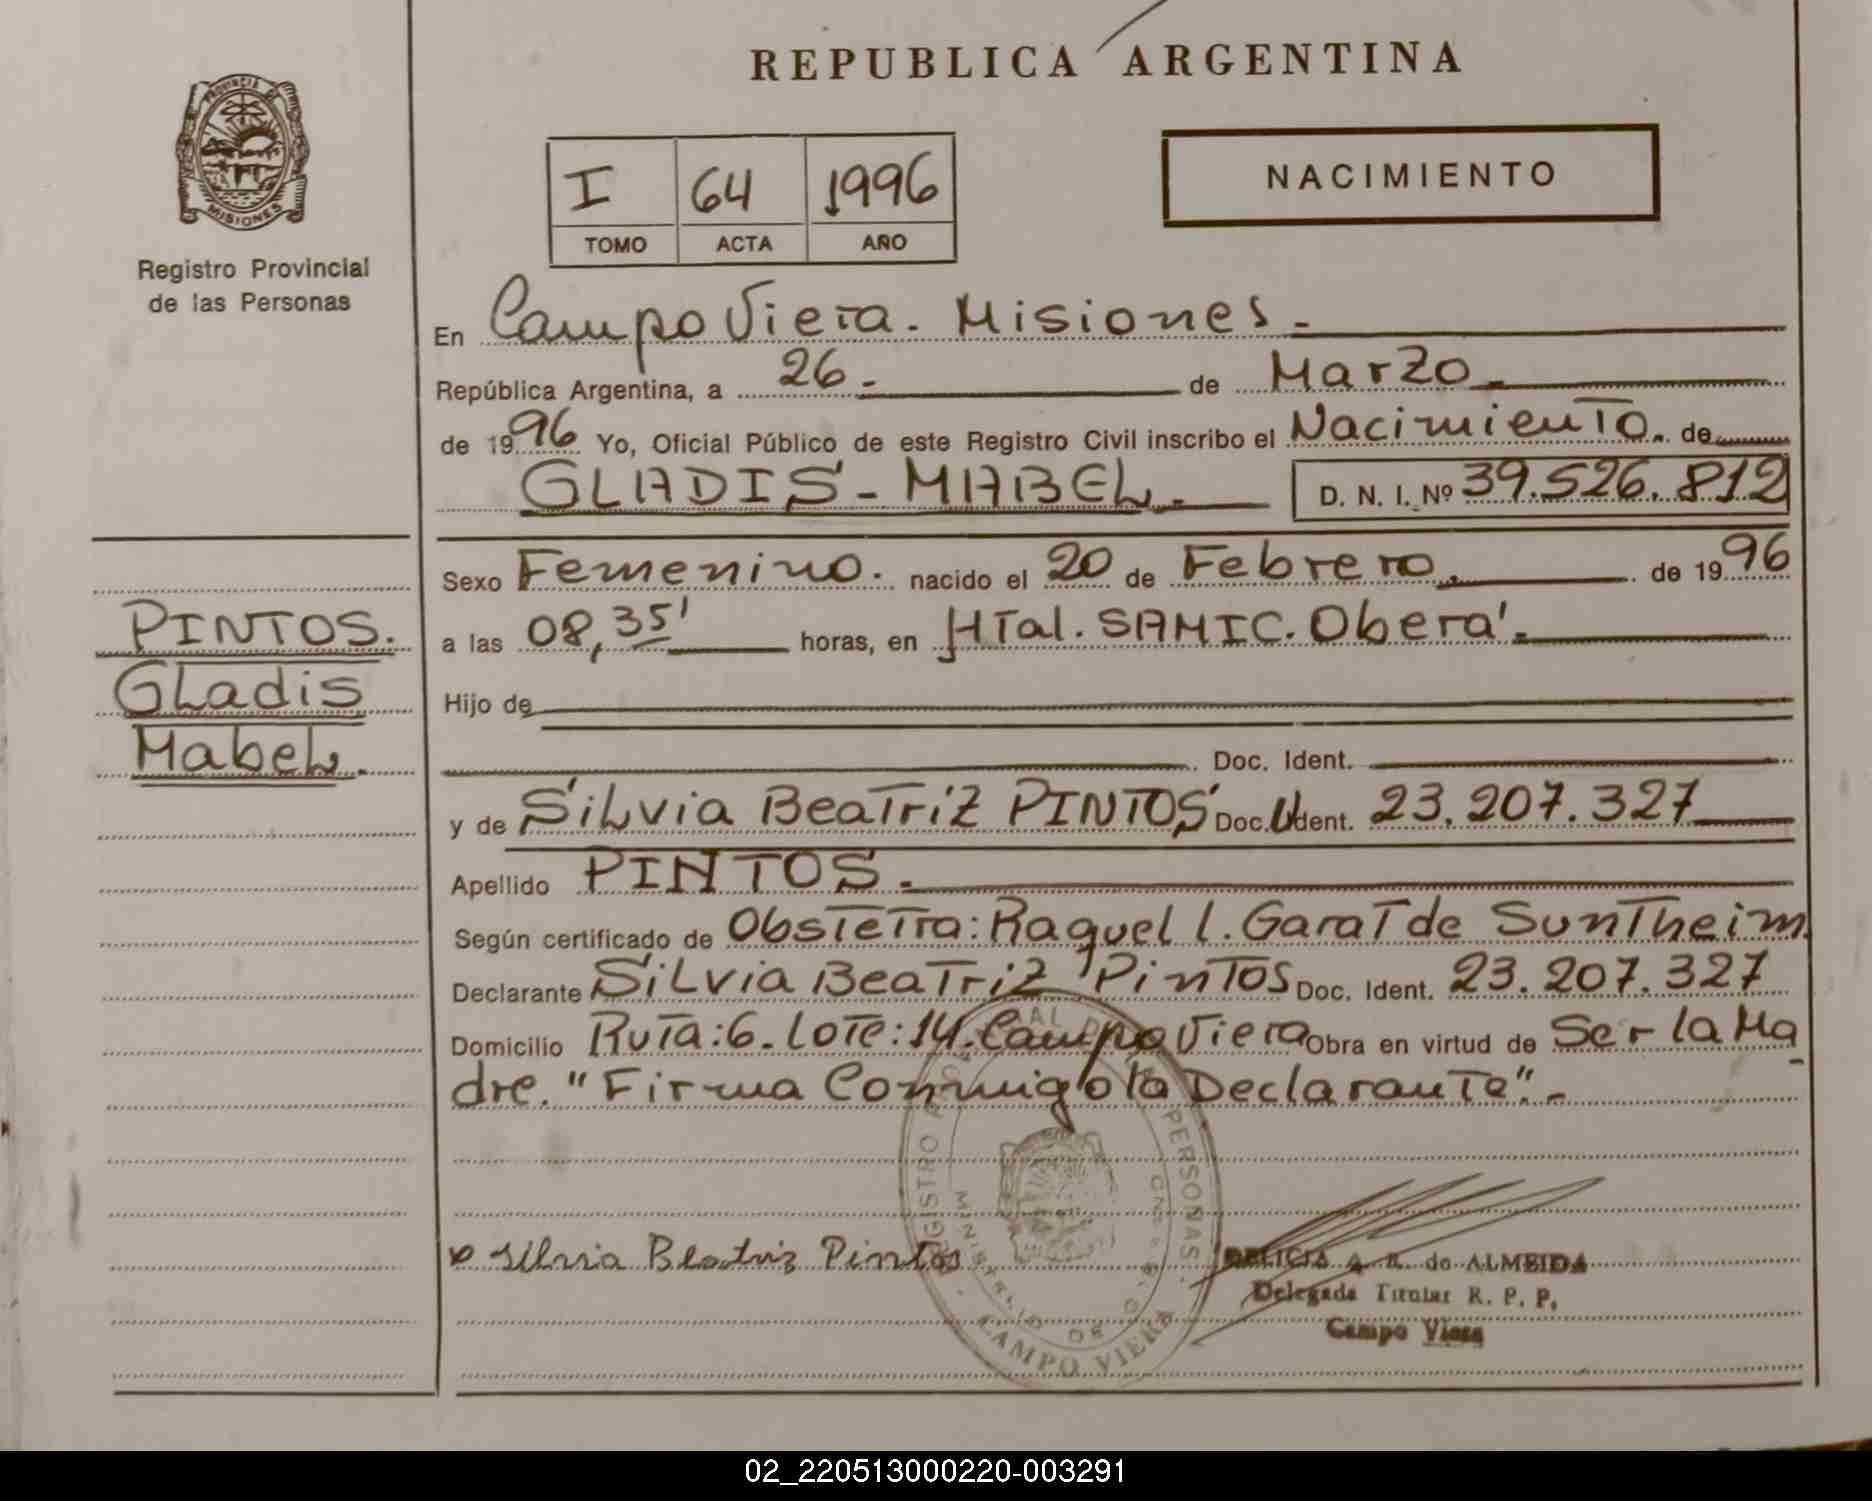 REPUBLICA ARGENTINA
PROVINCIA DE
MISIONES
Registro Provincial
de las Personas
NACIMIENTO
I 64 1996
TOMO ACTA AÑO
En Campo Viera. Misiones.
República Argentina, a 26 de Marzo
de 1996 Yo, Oficial Público de este Registro Civil inscribo el Nacimiento. de
GLADIS - MABEL. D. N. I. Nº 39.526.812
Sexo Femenino. nacido el 20 de Febrero. de 1996
PINTOS.
Gladis
Mabel.
a las 08,35' horas, en HTal. SAMIC. Oberá.
Hijo de
Doc. Ident.
y de Silvia Beatriz PINTOS Doc. Ident. 23.207.327
Apellido PINTOS.
Según certificado de Obstetra: Raquel l. Garat de Suntheim.
Declarante Silvia Beatriz Pintos Doc. Ident. 23.207.327
Domicilio Ruta: 6. Lote: 14. Campo Viera Obra en virtud de Ser la Ma
dre. "Firma Conmigo la Declarante".-
Silvia Beatriz Pintos
REGISTRO PERSONAS
CAMPO VIERA
DELICIA A. R. do ALMEIDA
Delegada Titular R. P. P.
Campo Viera
02_220513000220-003291